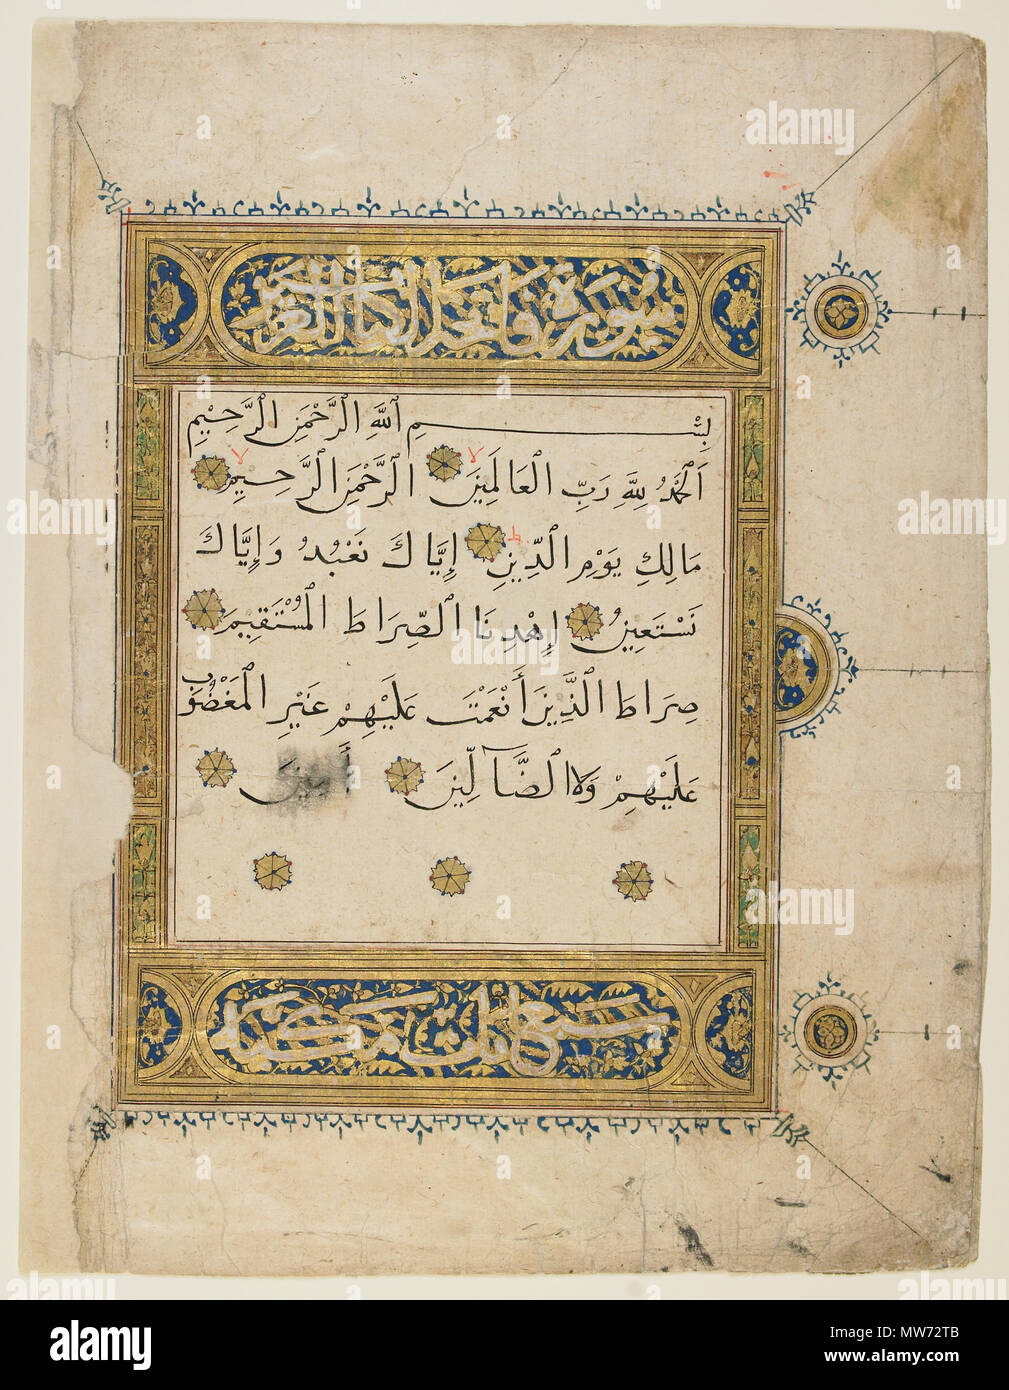 سورة فاتحة الكتاب
بِسْمِ اللَّهِ الرَّحْمَنِ الرَّحِيمِ
اَلْحَمْدُ لِلَّهِ رَبِّ الْعَالَمِينَ لا الرَّحْمَنِ الرَّحِيمِ لا
مَالِكِ يَوْمِ الدِّينِ ط إِيَّاكَ نَعْبُدُ وَإِيَّاكَ
نَسْتَعِينُ إِهْدِنَا الصِّرَاطَ الْمُسْتَقِيمَ
صِرَاطَ الَّذِينَ أَنْعَمْتَ عَلَيْهِمْ غَيْرِ الْمَغْضُوبِ
عَلَيْهِمْ وَلَا الضَّآلِّينَ أمين
سبع آيات مكية
alamy stock photo
Image ID: MW72TB
www.alamy.com